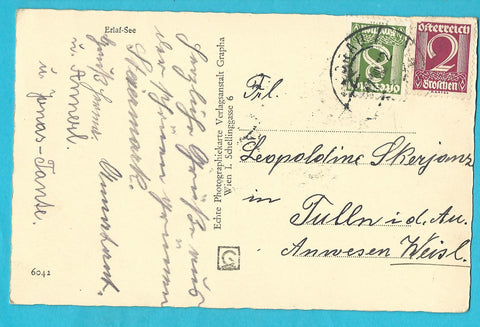 Erlaf-See
Herzliche Grüße aus
der schönen grünen
Steiermark.
u. Annerl
u. Jonas-Tante.
6042
Echte Photographiekarte Verlagsanstalt Grapha
Wien I. Schellinggasse 6
8
Österreich
2
Groschen
Frl.
Leopoldine Skerjanz
in
Tulln i. d. Au.
Anwesen Weisl.